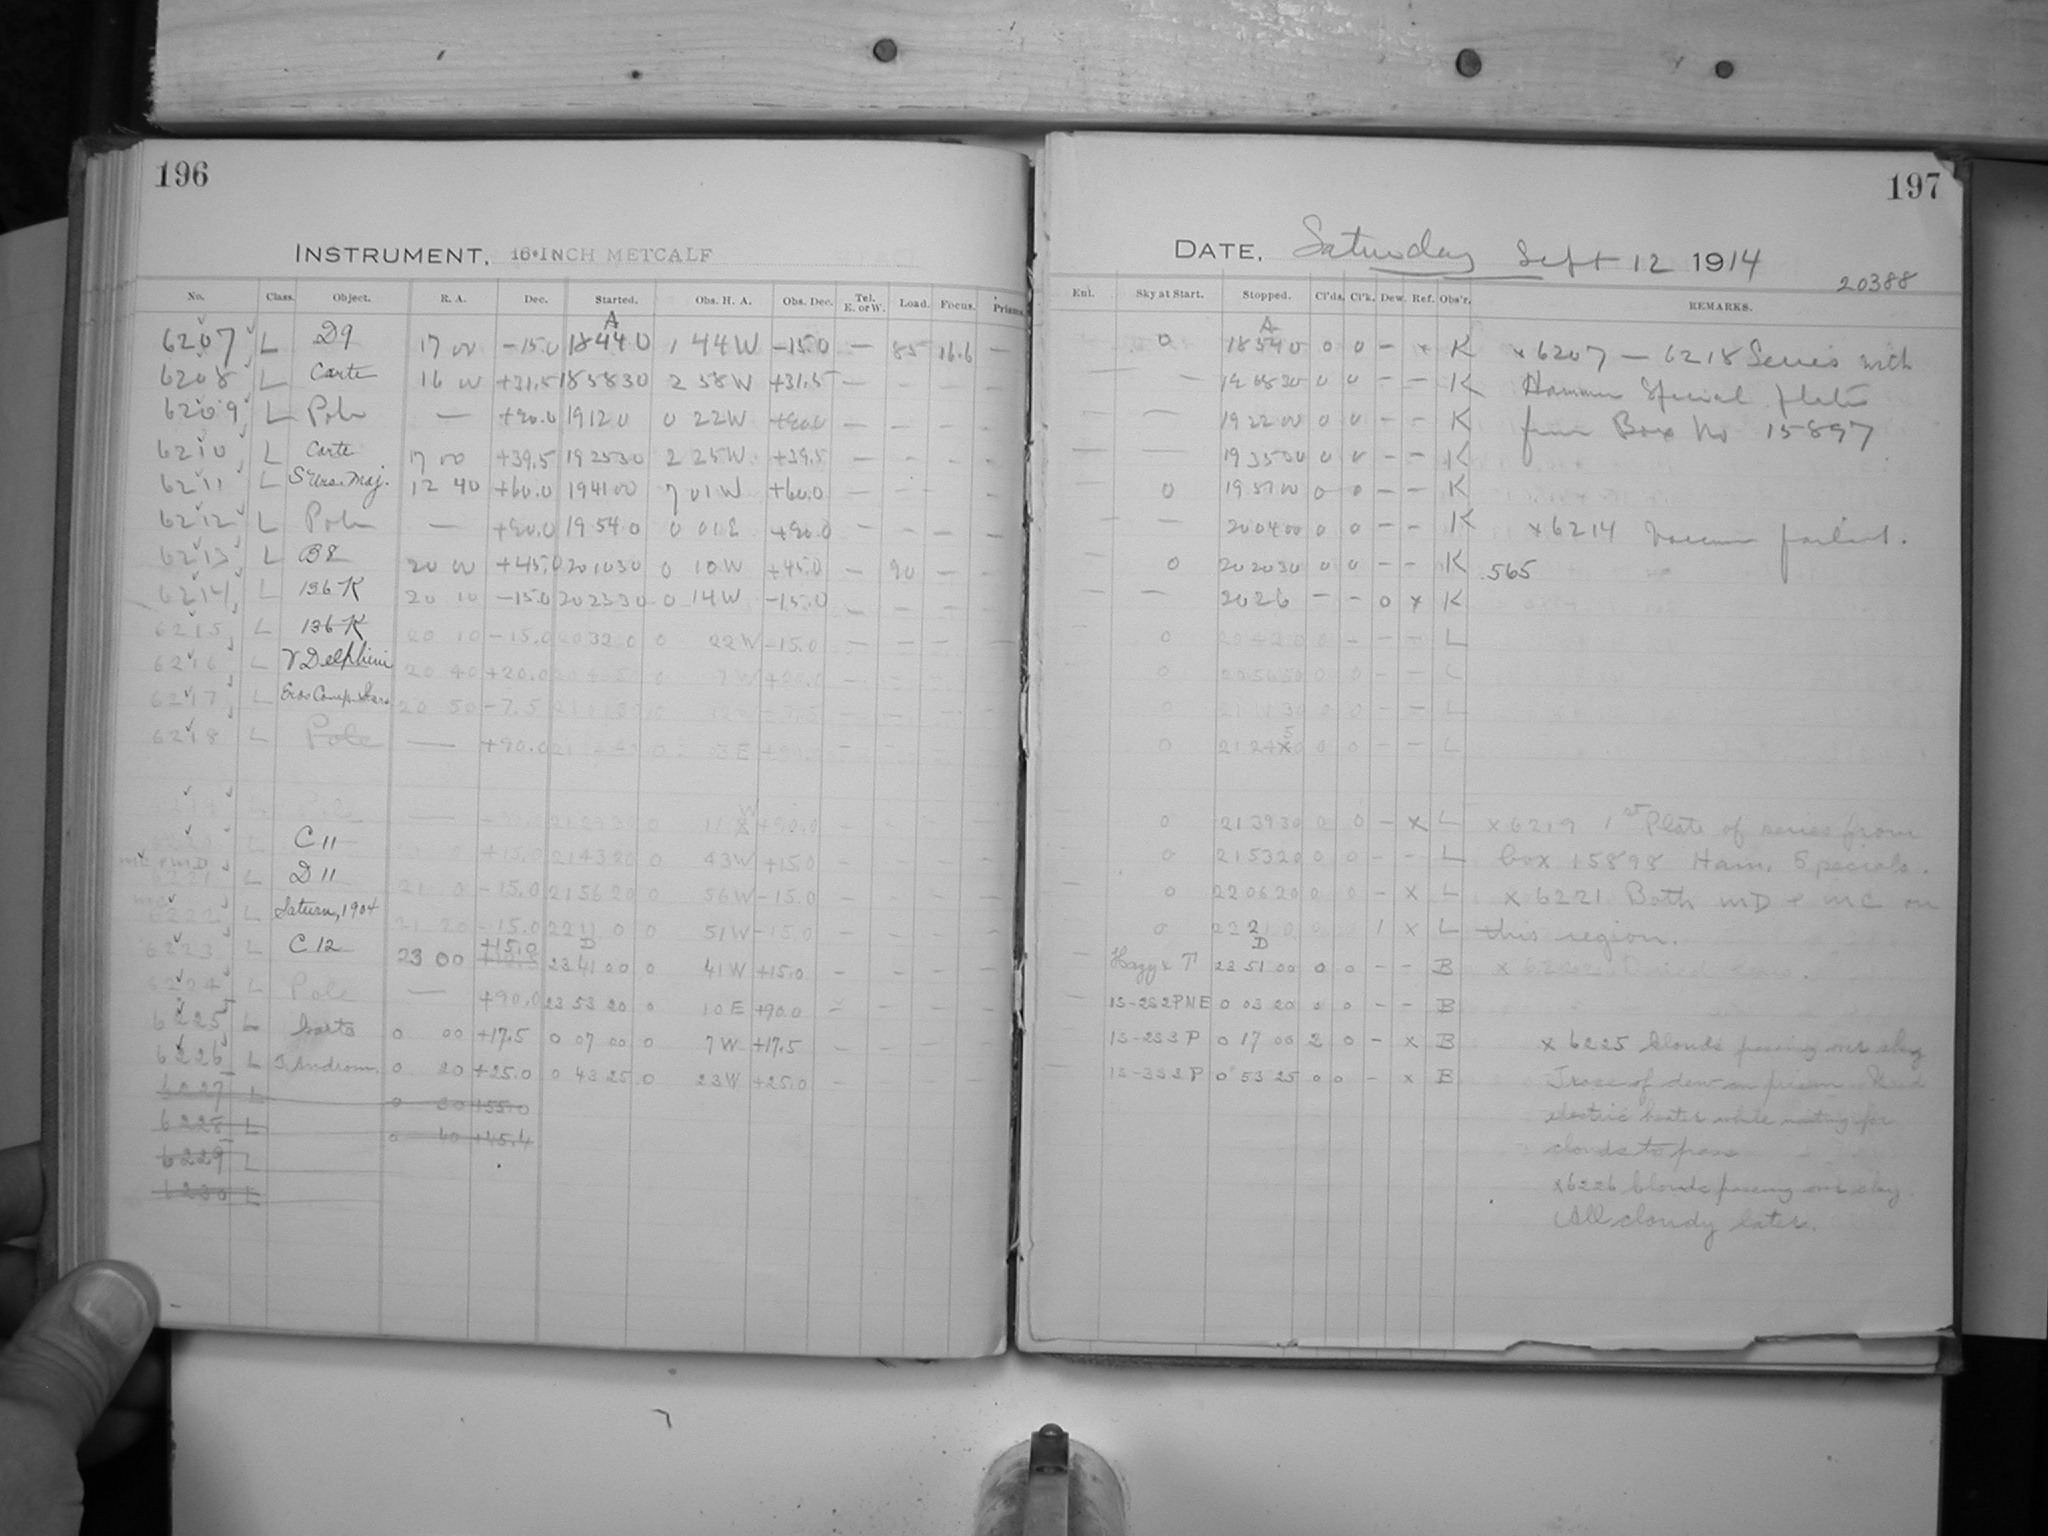 196
INSTRUMENT, 16-INCH METCALF
No. Class. Object. R. A. Dec. Started. Obs. H. A. Obs. Dec. Tel. E. or W. Load. Focus. Prisms.
A
6207 L D9 17 00 -15.0 18 44 0 1 44 W -15.0 — 85 16.6 —
6208 L Carte 16 00 +31.5 18 58 30 2 58 W +31.5 — — — —
6209 L Pole — +90.0 19 12 0 0 22 W +90.0 — — — —
6210 L Carte 17 00 +39.5 19 25 30 2 25 W +39.5 — — — —
6211 L S Urs. Maj. 12 40 +60.0 19 41 00 7 01 W +60.0 — — — —
6212 L Pole — +90.0 19 54 0 0 01 E +90.0 — — — —
6213 L B8 20 00 +45.0 20 10 30 0 10 W +45.0 — 90 — —
6214 L 136 K 20 10 -15.0 20 23 30 0 14 W -15.0 — — — —
6215 L 136 K 20 10 -15.0 20 32 0 0 22 W -15.0 — — — —
6216 L V Delphini 20 40 +20.0 0 7 W +20.0 — — — —
6217 L Eros Comp. Stars 20 50 -7.5 0 -7.5 — — — —
6218 L Pole — +90.0 21 03 E +90.0 — —
W
L Pole — 21 29 30 0 11 +90.0 — — — —
L C 11 +15.0 21 43 20 0 43 W +15.0 — — — —
MC & MD
6221 L D 11 21 0 -15.0 21 56 20 0 56 W -15.0 — — — —
MC
6222 L Saturn, 1904 21 20 -15.0 22 11 0 0 51 W -15.0 — — — —
+15.0 D
6223 L C 12 23 00 23 41 00 0 41 W +15.0 — — — —
6224 L Pole — +90.0 23 53 20 0 10 E +90.0 — — — —
6225 L Carte 0 00 +17.5 0 07 00 0 7 W +17.5 — — — —
6226 L T. Androm. 0 20 +25.0 0 43 25 0 23 W +25.0 — — — —
6227 L 0 +55.0
6228 L 0 40 +45.4
6229 L
6230 L
197
DATE, Saturday Sept 12 1914
20388
Enl. Sky at Start. Stopped. Cl'ds. Cl'k. Dew. Ref. Obs'r. REMARKS.
A
0 18 54 0 0 0 — x K x 6207 — 6218 Series with
— — 0 0 — — K Hammer Special plates
— — 19 22 00 0 0 — — K from Box No 15897
— — 19 35 00 0 0 — — K
0 19 51 00 0 0 — — K
— — 20 04 00 0 0 — — K x 6214 Vacuum failed.
— 0 20 20 30 0 0 — — K .565
— — 20 26 — — 0 x K
0 20 42 0 0 — — — L
0 20 56 50 0 0 — — L
0 21 11 30 0 0 — — L
5
0 21 24 0 0 0 — — L
0 21 39 30 0 0 — x L x 6219 1st Plate of series from
0 21 53 20 0 0 — — L box 15898 Ham. Specials.
0 22 06 20 0 0 — x L x 6221 Both MD & MC on
0 22 2 1 x L this region.
D
Hazy & T 23 51 00 0 0 — — B x 6222
1S-2S2PNE 0 03 20 0 0 — — B
1S-2S3P 0 17 00 2 0 — x B x 6225 Clouds passing over sky
1S-3S3P 0 53 25 0 0 — x B Trace of dew on prism. Used
electric heater while waiting for
clouds to pass
x 6226 Clouds passing over sky.
All cloudy later.